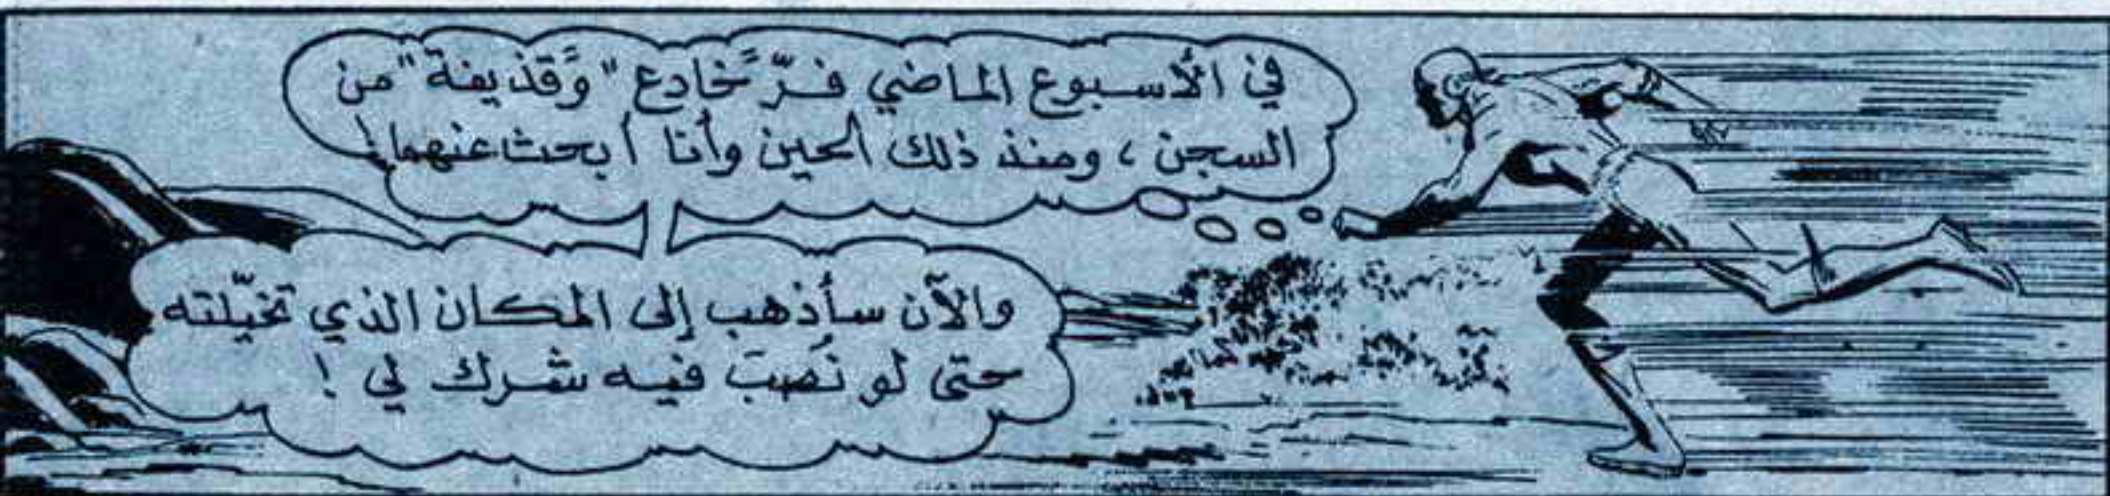 في الأسبوع الماضي فرّ "مخادع" و"قذيفة" من
السجن ، ومنذ ذلك الحين وأنا أبحث عنهما!
والآن سأذهب إلى المكان الذي تخيّلته
حتى لو نُصبَ فيه شرك لي !